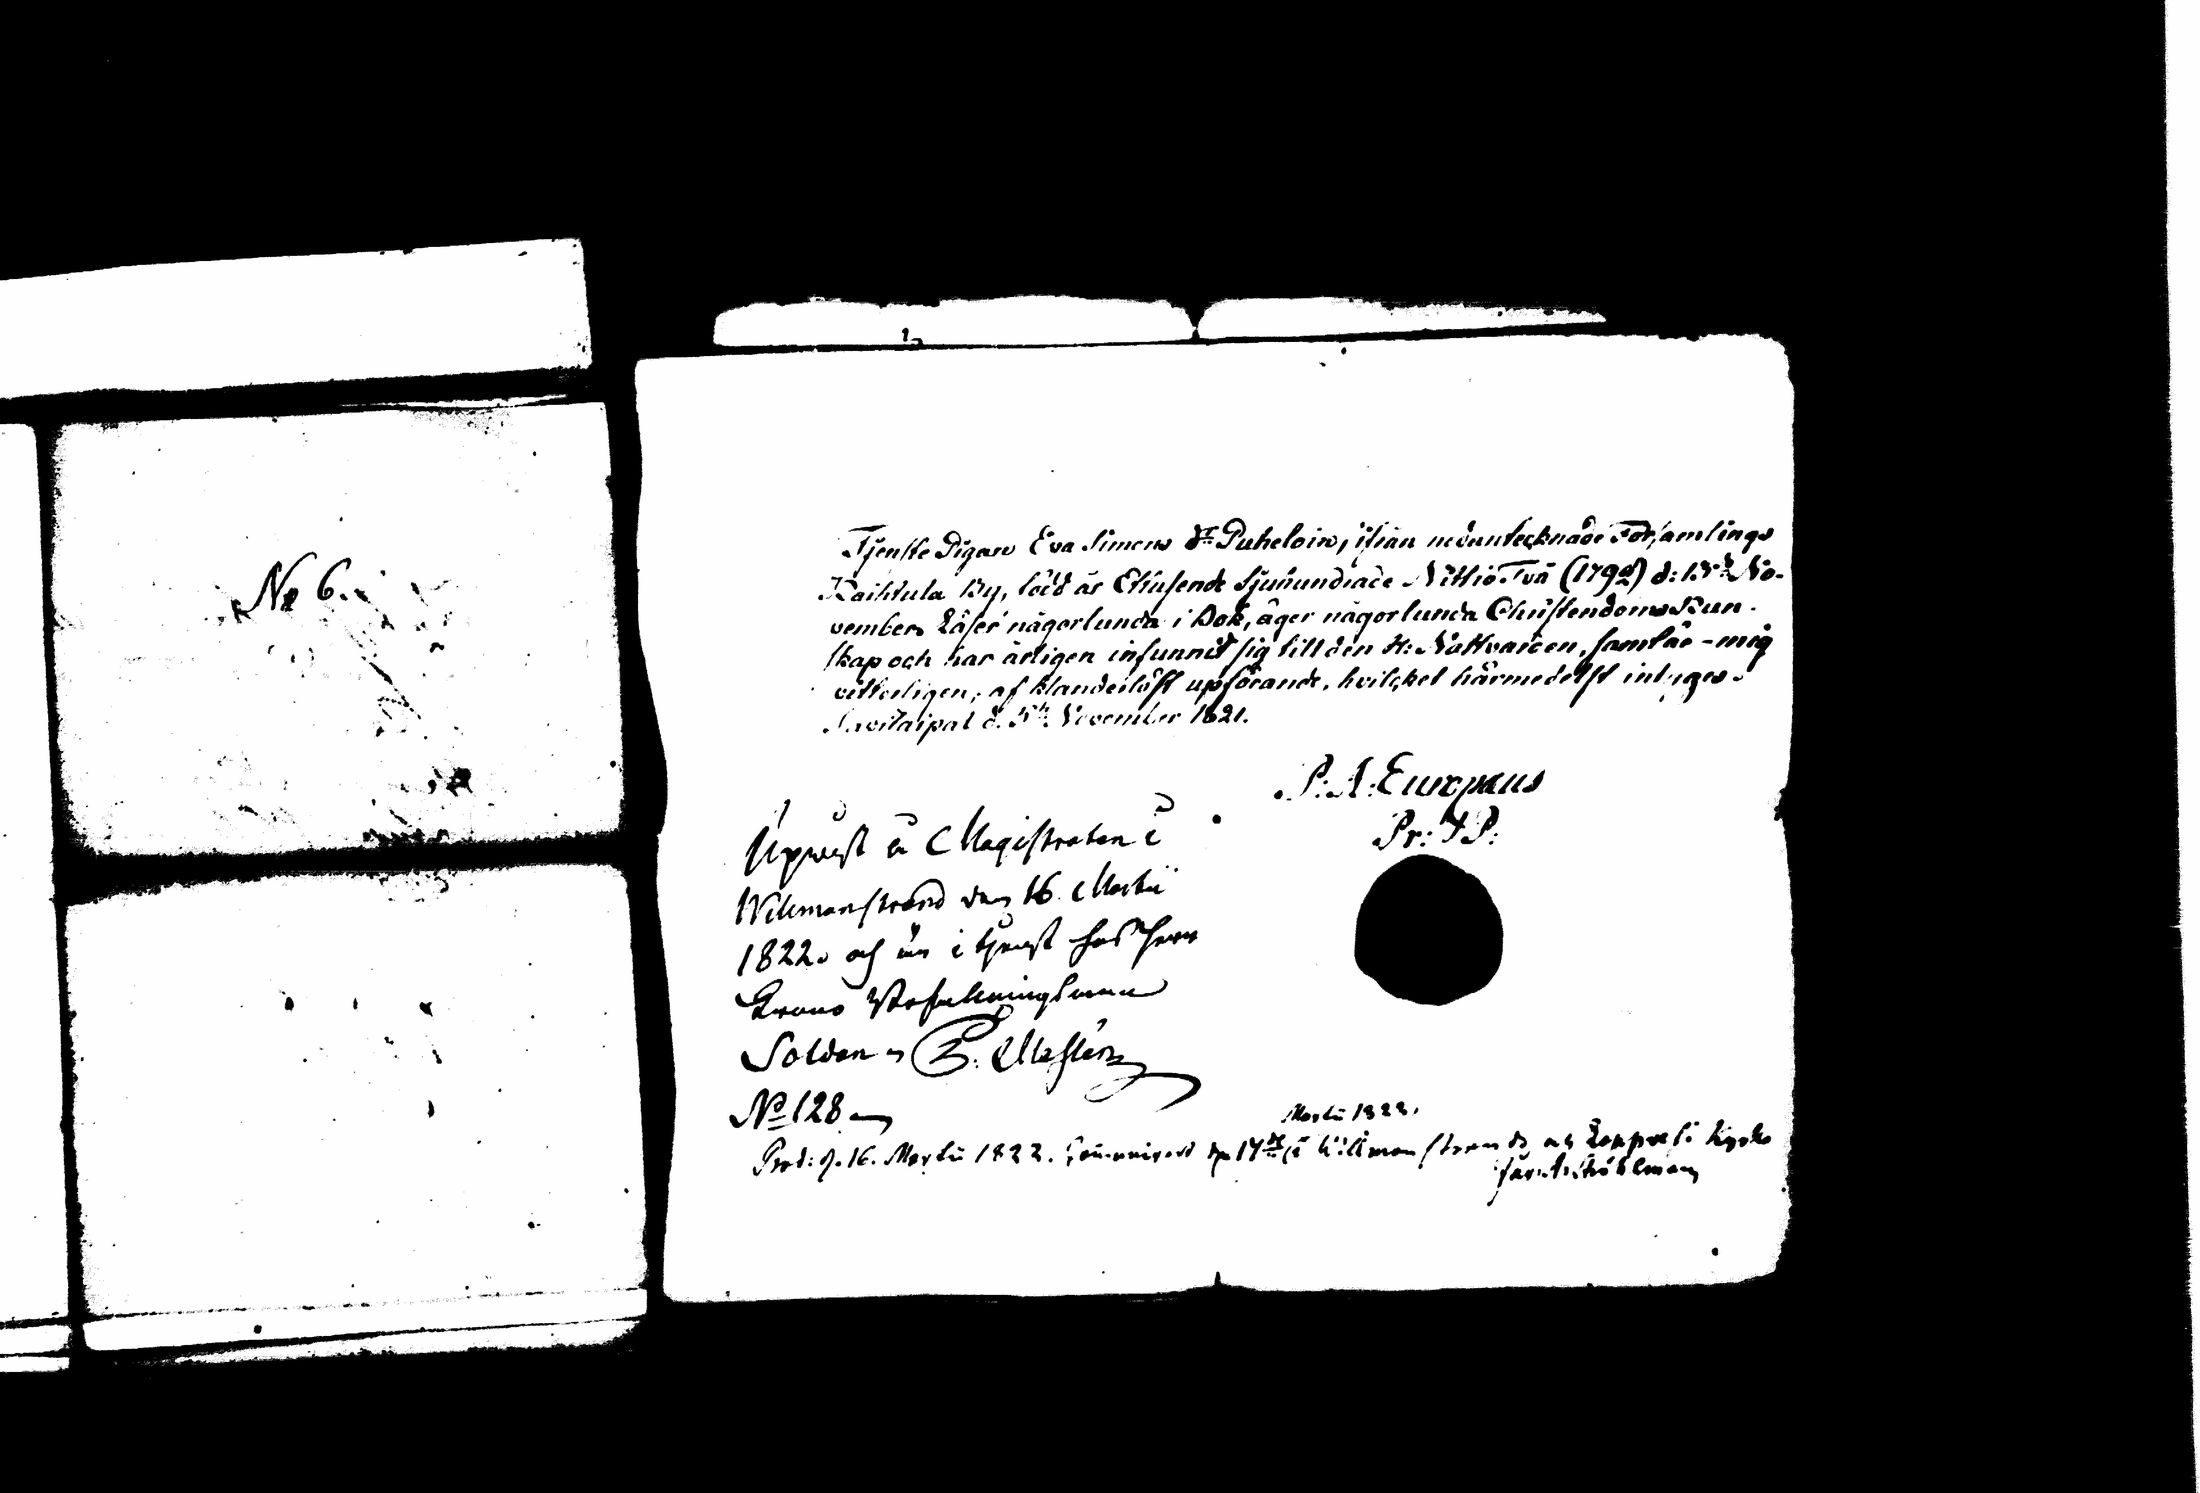 No 6.
Tjenste Pigan Eva Simons dr Puheloin, ifrån nedantecknade Församlings
Kaihtula By, född år Ettusende Sjuhundrade Nittio Två (1792) d: 13de No-
vember, Läser någorlunda i Bok, äger någorlunda Christendoms Kun-
skap och har årligen infunnit sig till den H: Nattvarden, samt är - mig
vitterligen, af klanderlöst upförande, hvilcket härmedelst intygas.
Savitaipal d. 5te November 1821.
P. A: Europæus
Pr: & P:
Upvist i Magistraten i
Wilmanstrand den 16 Martii
1822. och är i tjenst hos Herr
Krono Befallningsman
Soldan
No 128
Martii 1822.
Prod: d. 16. Martii 1822. Communicerat d 17de i Willmanstrands och Lappvesi Kyrko